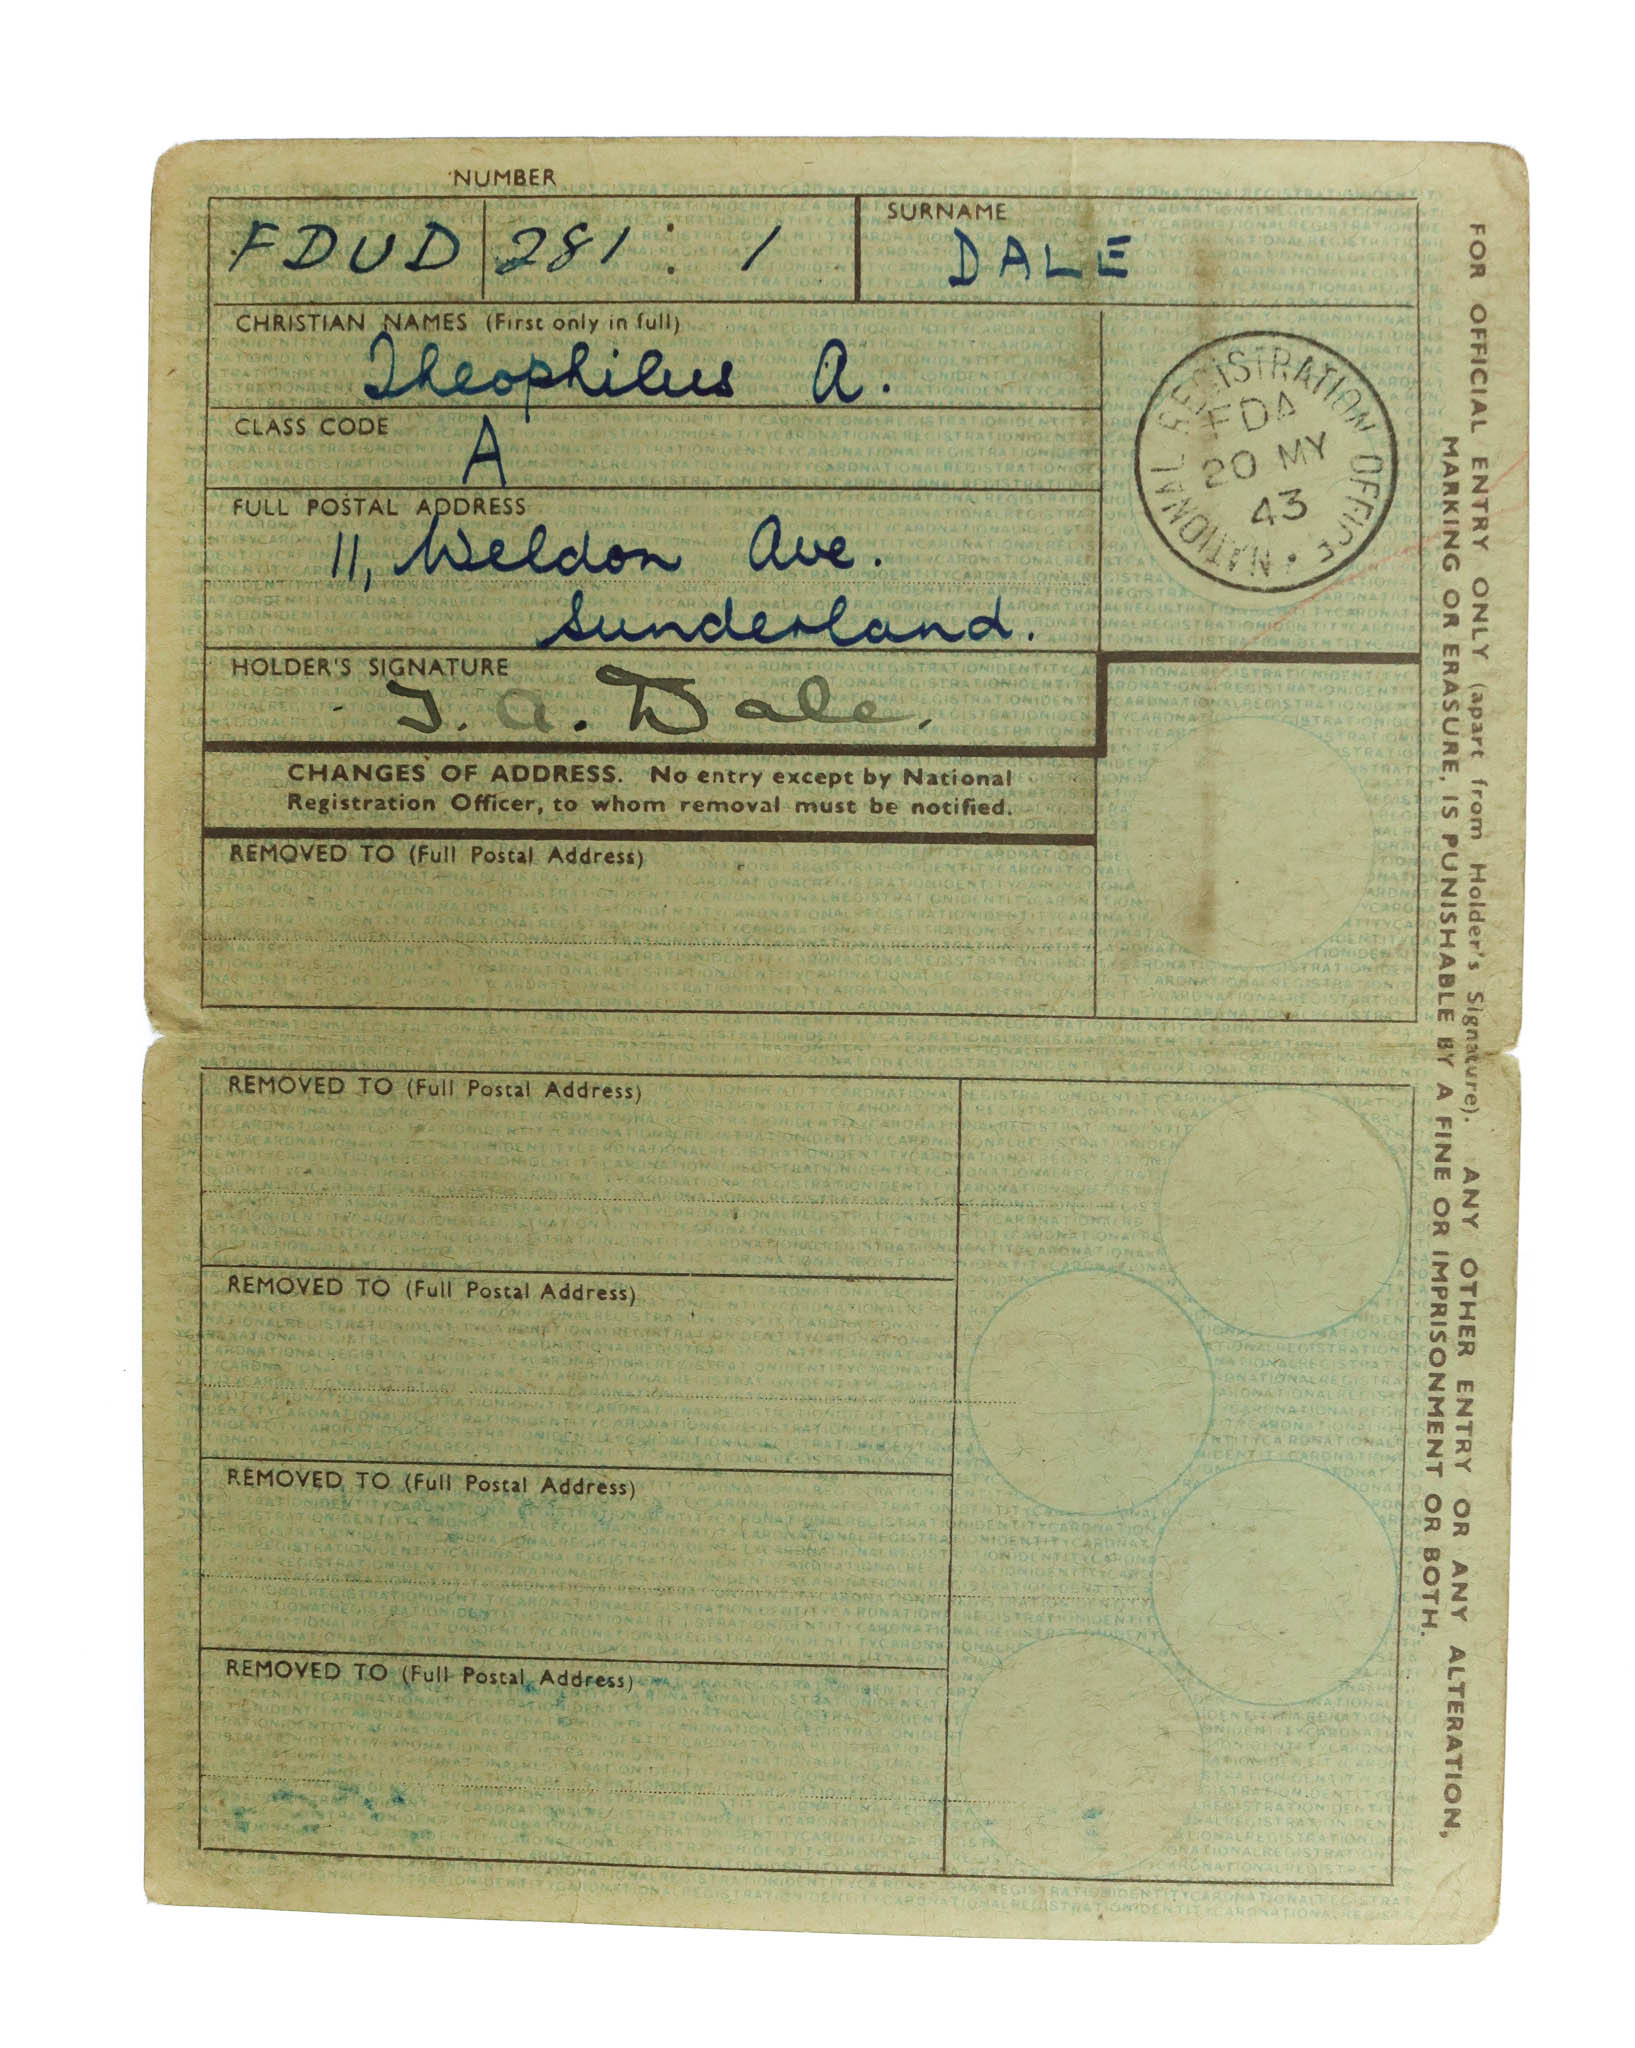 NUMBER
FDUD 281 : 1
SURNAME
DALE
CHRISTIAN NAMES (First only in full)
Theophilus A.
CLASS CODE
A
FULL POSTAL ADDRESS
11, Weldon Ave.
Sunderland.
HOLDER'S SIGNATURE
T. A. Dale.
NATIONAL REGISTRATION OFFICE
FDA
20 MY
43
CHANGES OF ADDRESS. No entry except by National
Registration Officer, to whom removal must be notified.
REMOVED TO (Full Postal Address)
REMOVED TO (Full Postal Address)
REMOVED TO (Full Postal Address)
REMOVED TO (Full Postal Address)
REMOVED TO (Full Postal Address)
FOR OFFICIAL ENTRY ONLY (apart from Holder's Signature). ANY OTHER ENTRY OR ANY ALTERATION,
MARKING OR ERASURE, IS PUNISHABLE BY A FINE OR IMPRISONMENT OR BOTH.